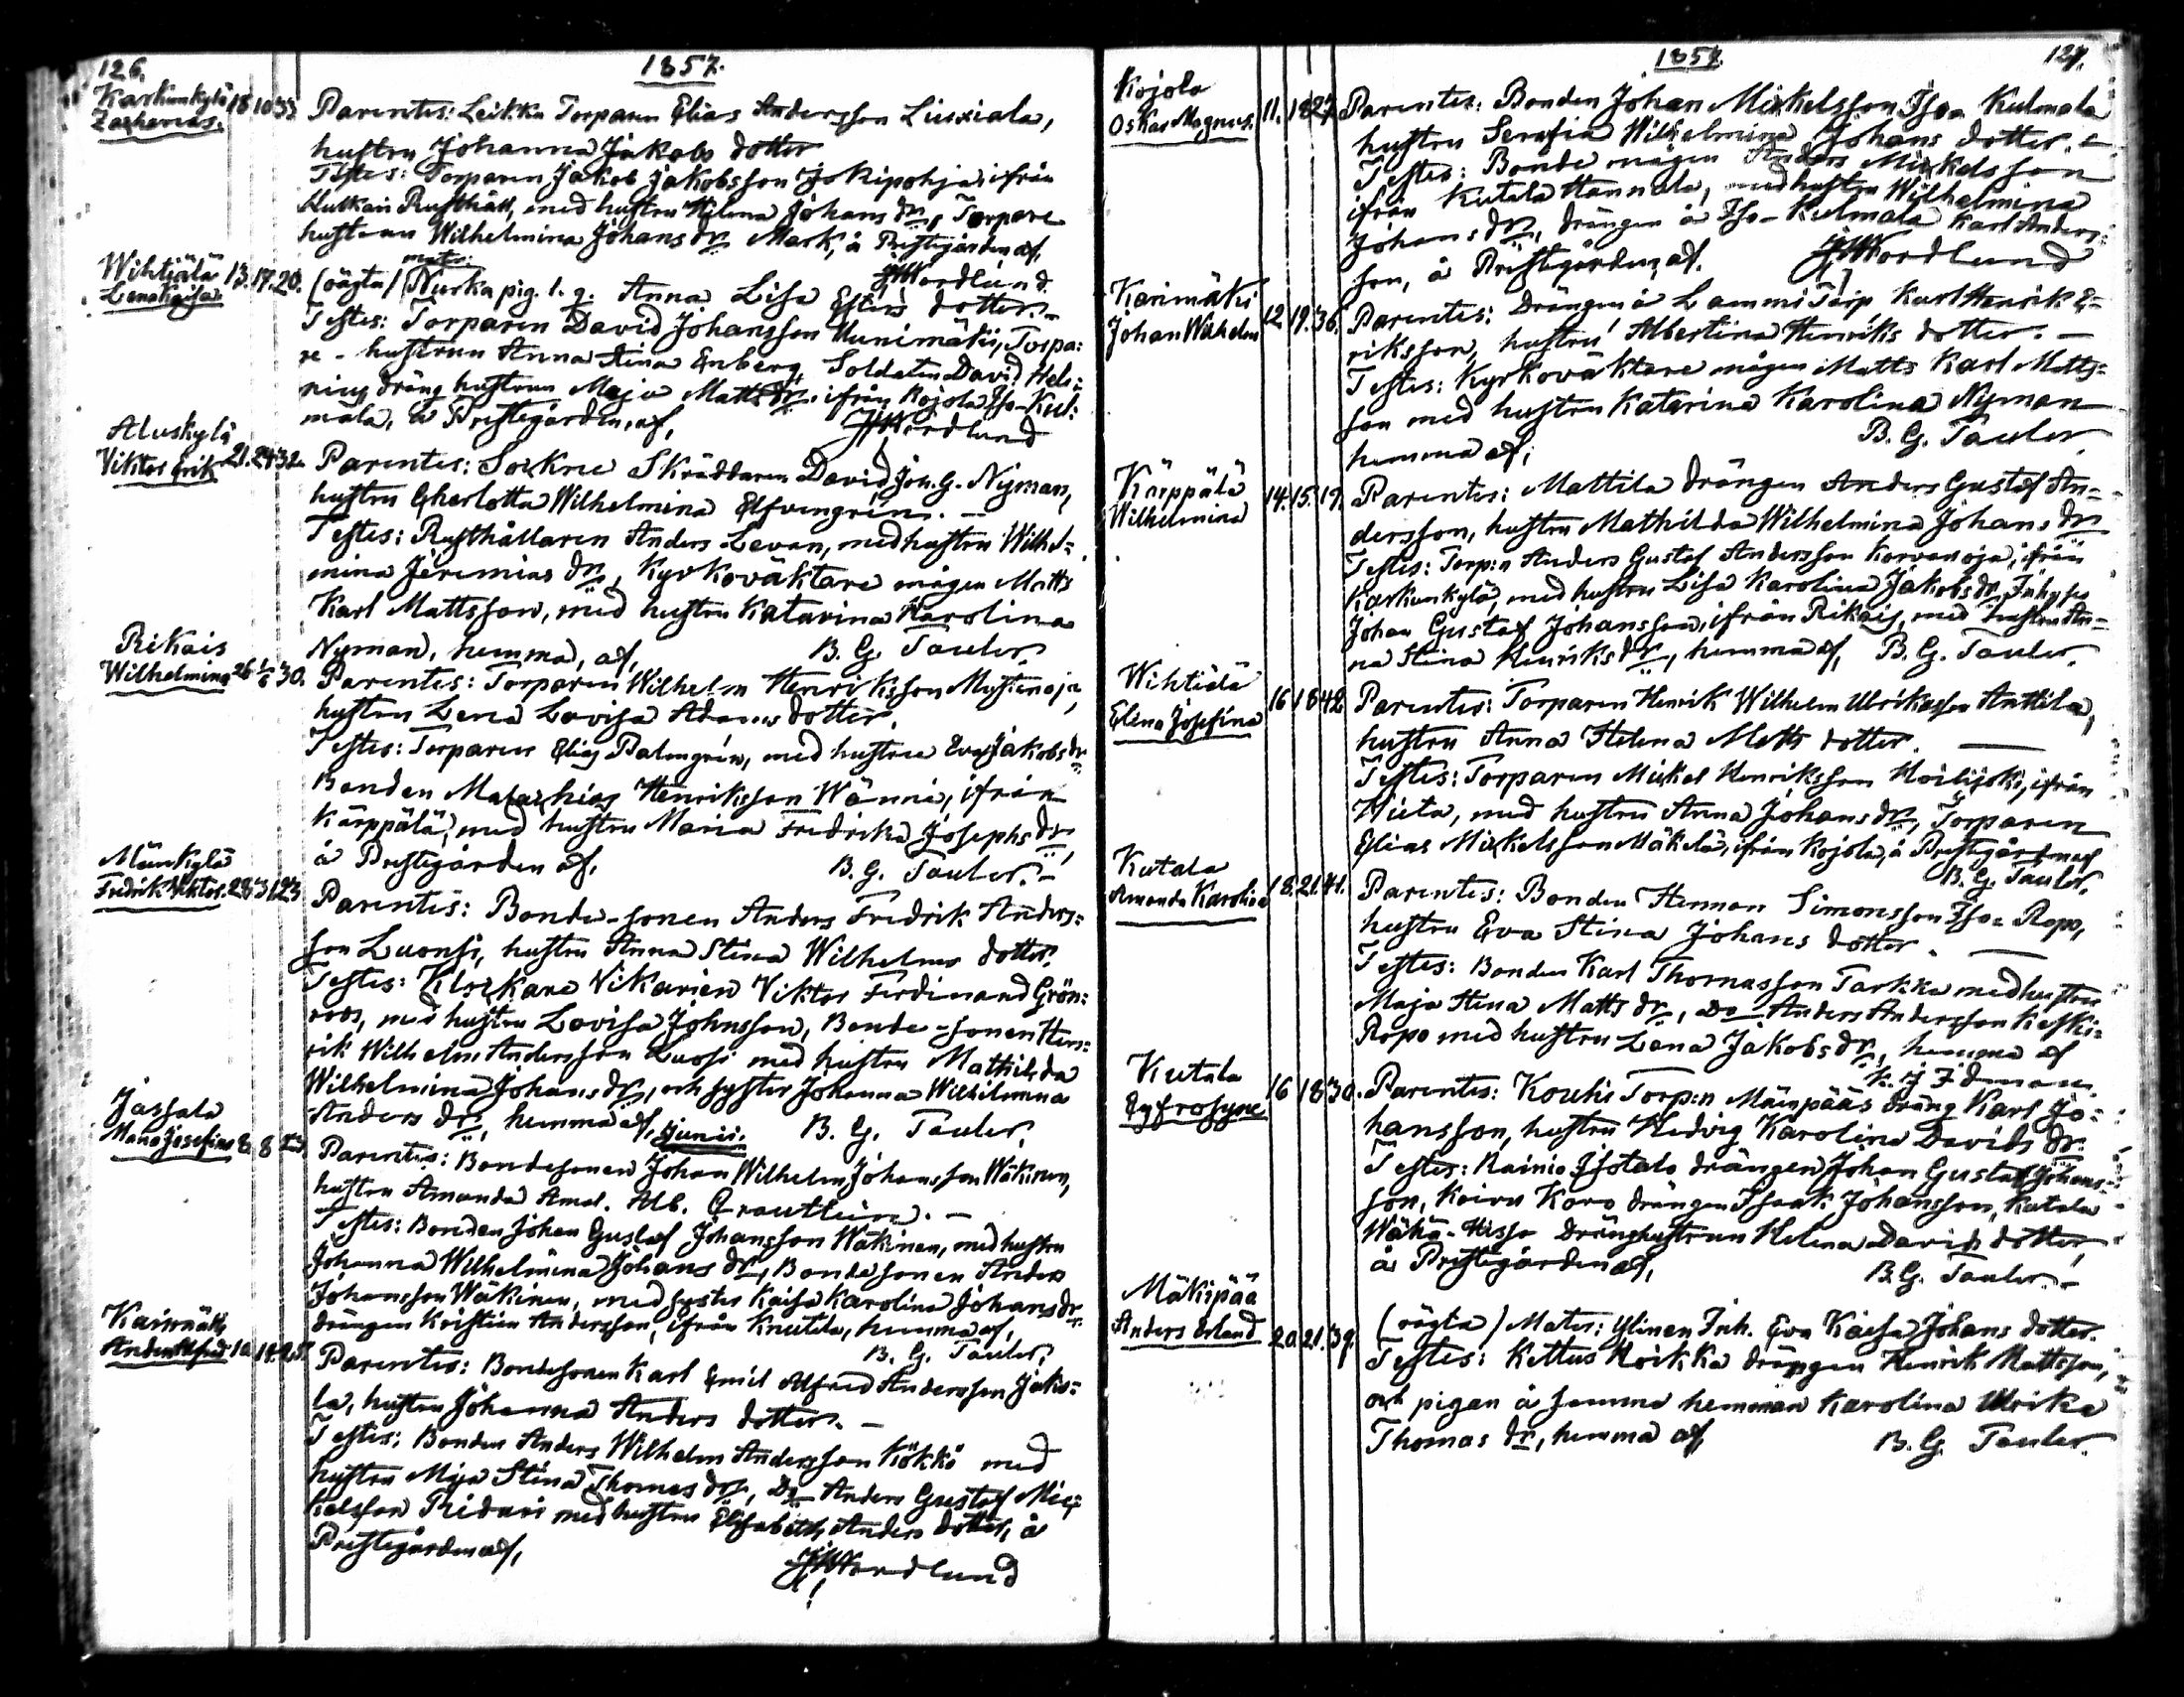 126.
1857.
Karkunkylä 18 10 33
Zacharias.
Parentes: Leikku Torparen Elias Andersson Liuxiala,
hustru Johanna Jakobs dotter
Testes: Torparen Jakob Jakobsson Jokipohja ifrån
Hutkais Rusthåll, med hustru Helena Johans dr, Torpare
hustrun Wilhelmina Johans dr Mark, å Prestegården af,
JHNordlund.
Wihtiälä 13. 17. 20.
Lena Kajsa
mater:
(oägta) Nurka pig. l. q. Anna Lisa Esters dotter.
Testes: Torparen David Johansson Uunimäki, Torpa:
re-hustrun Anna Stina Enberg, Soldaten David Hels:
nius dräng hustrun Maja Matts dr. ifrån Kojola Iso-Kul:
mala, å Prestegården, af, JHNordlund
Aluskylä
Viktor Erik 21. 24 32.
Parentes: Sockne Skräddaren David Joh. G. Nyman,
hustru Charlotta Wilhelmina Elfvengrén. -
Testes: Rusthållaren Anders Levan, med hustru Wilhel=
mina Jeremias dr, Kyrkoväktare mågen Matts
Karl Mattsson, med hustru Katarina Karolina
Nyman, hemma, af, B. G. Tauler.
Rikais
Wilhelmina 26 1/6 30.
Parentes: Torparen Wilhelm Henriksson Mustanoja,
hustru Lena Lovisa Adams dotter.
Testes: Torparen Elias Palmgrén, med hustru Eva Jakobs dr
Bonden Malachias Henriksson Wänni, ifrån
Kärppälä, med hustru Maria Fredrika Josephs dr,
å Prestegården af, B. G. Tauler. -
Märkylä
Fredrik Viktor. 28 31 23
Parentes: Bonde-sonen Anders Fredrik Anders:
son Luonsi, hustru Anna Stina Wilhelms dotter.
Testes: Klockare Vikarien Viktor Ferdinand Grön:
roos, med hustru Lovisa Johnsson, Bonde-sonen Hen:
rik Wilhelm Andersson Luosi med hustru Mathilda
Wilhelmina Johans dr, och syster Johanna Wilhelmina
Anders dr, hemma af, B. G. Tauler.
Junii.
Jassala
Maria Josefina 8. 8
Parentes: Bondesonen Johan Wilhelm Johansson Wäkinen,
hustru Amanda Amal. Alb. -
Testes: Bonden Johan Gustaf Johansson Wäkinen, med hustru
Johanna Wilhelmina Johans dr, Bondesonen Anders
Johansson Wäkinen, med syster Kaisa Karolina Johans dr
drängen Kristian Andersson, ifrån Knuutila, hemma af,
B. G. Tauler.
Karimäki
Anders Alfred 10. 14. 25.
Parentes: Bondesonen Karl Emil Alfred Andersson Jaki:
la, hustru Johanna Anders dotter. -
Testes: Bonden Anders Wilhelm Andersson Kökkö med
hustru Maja Stina Thomas dr, Do Anders Gustaf Mic:
kelsson Pridari med hustru Elisabeth Anders dotter, å
Prestegården af,
JHNordlund
1857.
127.
Kojola
Oskar Magnus. 11. 18 27.
Parentes: Bonden Johan Mickelsson Iso-Kulmala
hustru Serafia Wilhelmina Johans dotter. -
Testes: Bonde mågen Anders Mickelsson
ifrån Kutala Hannula, med hustru Wilhelmina
Johans dr, drängen å Iso-Kulmala Karl Anders:
son, å Prestegården, af. JHNordlund
Karimäki
Johan Wilhelm 12 19. 36.
Parentes: Drängen å Lammi Torp Karl Henrik E=
riksson, hustru Albertina Henriks dotter. -
Testes: Kyrkoväktare mågen Matts Karl Matts=
son med hustru Katarina Karolina Nyman
hemma af, B. G. Tauler.
Kärppälä
Wilhelmina 14. 15. 19.
Parentes: Mattila drängen Anders Gustaf An=
dersson, hustru Mathilda Wilhelmina Johans dr
Testes: Torp:n Anders Gustaf Andersson Korvanoja, ifrån
Karkunkylä, med hustru Lisa Karolina Jakobs dr, Inhyses
Johan Gustaf Johansson, ifrån Rikais, med hustru An=
na Stina Henriks dr, hemma af, B. G. Tauler.
Wihtiälä
Elina Josefina 16 18 42
Parentes: Torparen Henrik Wilhelm Ulriksson Anttila,
hustru Anna Helena Matts dotter.
Testes: Torparen Mickel Henriksson Koilijoki, ifrån
Wieta, med hustru Anna Johans dr, Torparen
Elias Mickelsson Mäkelä, ifrån Kojola, å Prestegården af
B. G. Tauler.
Kutala
Amanda Karolina 18. 21. 41.
Parentes: Bonden Herman Simonsson Iso-Ropo,
hustru Eva Stina Johans dotter.
Testes: Bonden Karl Thomasson Tarkka med hustru
Maja Stina Matts dr, Do Anders Andersson Keski=
Ropo med hustru Lena Jakobs dr, hemma af
K. J. Idman.
Kutala
Eufrosyne 16 18 30.
Parentes: Kouhi Torp:n Mäenpääs dräng Karl Jo=
hansson, hustru Hedvig Karolina Davids dr.
Testes: Rainio Isotalo drängen Johan Gustaf Johans=
son, Koivu Koro drängen Isaak Johansson, Kutala
Wähä-Hissa Dränghustrun Helena Davids dotter,
å Prestegården af, B. G. Tauler. -
Mäkipää
Anders Erland 20. 21. 39.
(oägta) Mater: Ylinen Inh. Eva Kaisa Johans dotter.
Testes: Kettus Hoikka drängen Henrik Mattsson,
och pigan å samma hemman Karolina Ulrika
Thomas dr, hemma af, B. G. Tauler.